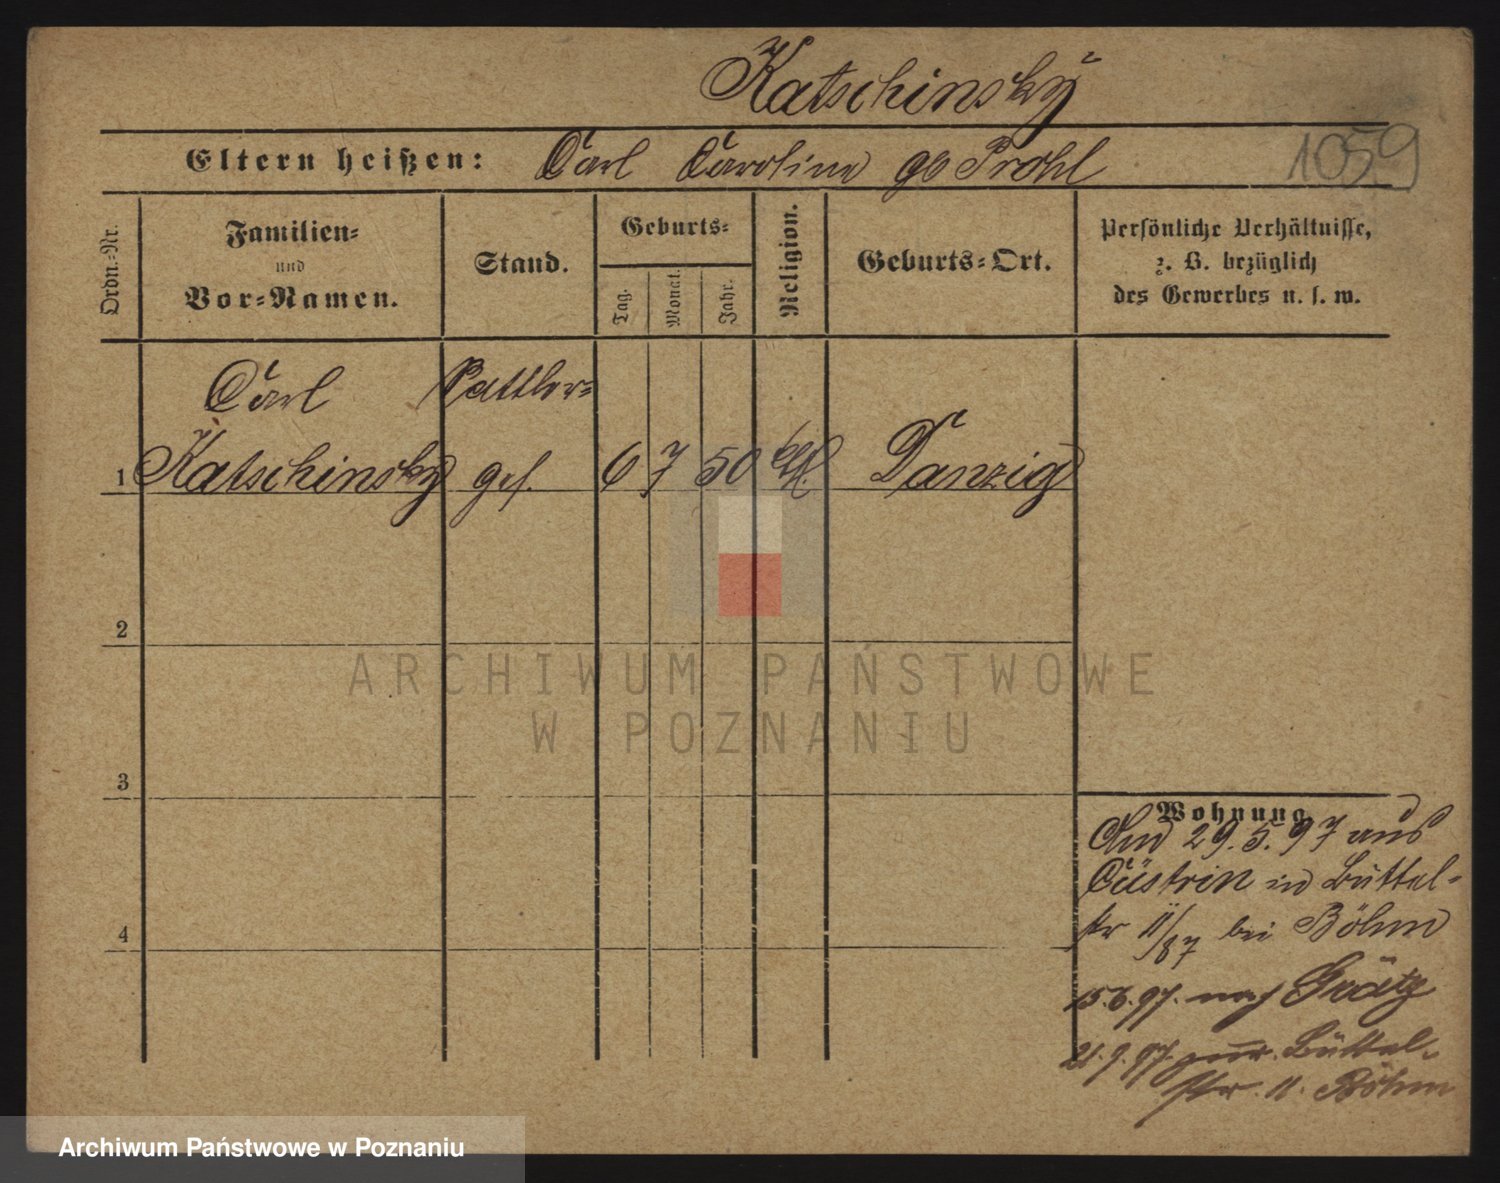 Katschinsky
Eltern heißen: Carl Caroline gb Pröhl
1059
Ordn.-Nr.
Familien-
und
Vor-Namen.
Stand.
Geburts-
Tag.
Monat.
Jahr.
Religion.
Geburts-Ort.
Persönliche Verhältnisse,
z. B. bezüglich
des Gewerbes u. s. w.
Carl
Sattler-
1 Katschinsky ges. 6 7 50 Danzig
2
3
4
Wohnung
29.5.97 aus
Cüstrin in Büttel-
str 11/87 bei Böhm
15.6.97. nach Grätz
21.9.97 Büttel-
str. 11. Böhm
ARCHIWUM PAŃSTWOWE
W POZNANIU
Archiwum Państwowe w Poznaniu